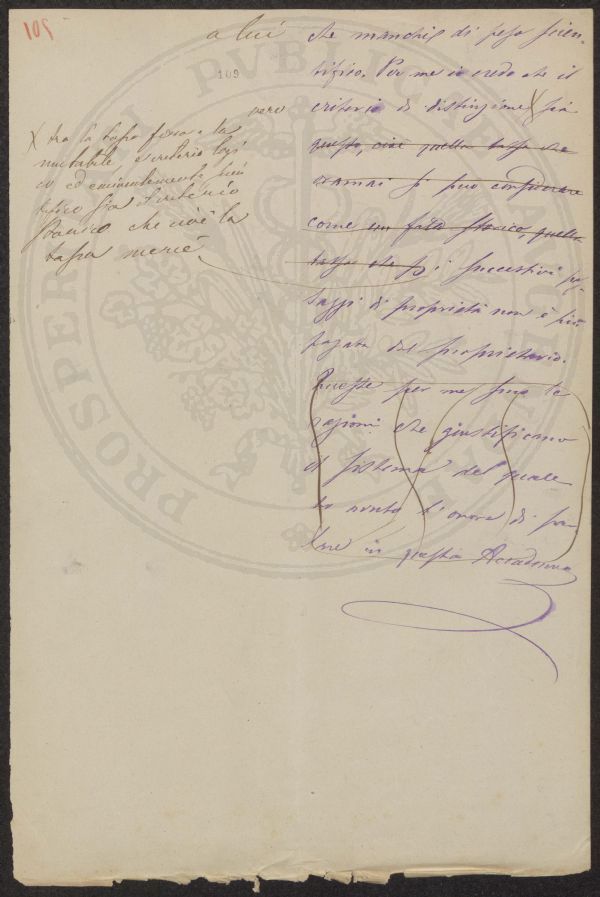 107
a lui
109
che manchi di peso scien-
tifico. Per me io credo che il
vero
criterio di distinzione X sia
questo, cioè quella tassa che
oramai si può considerare
come un fatto storico, quella
tassa che
i successivi pas-
saggi di proprietà non è più
pagata dal proprietario.
Queste per me sono le
ragioni che giustificano
il sistema del quale
ho avuto l'onore di par-
lare in questa Accademia
X tra la tassa fissa e la
mutabile criterio logi
co ed eminentemente scien
tifico sia il criterio
storico che cioè la
tassa
PROSPERITATI PVBLICAE AVGENDAE